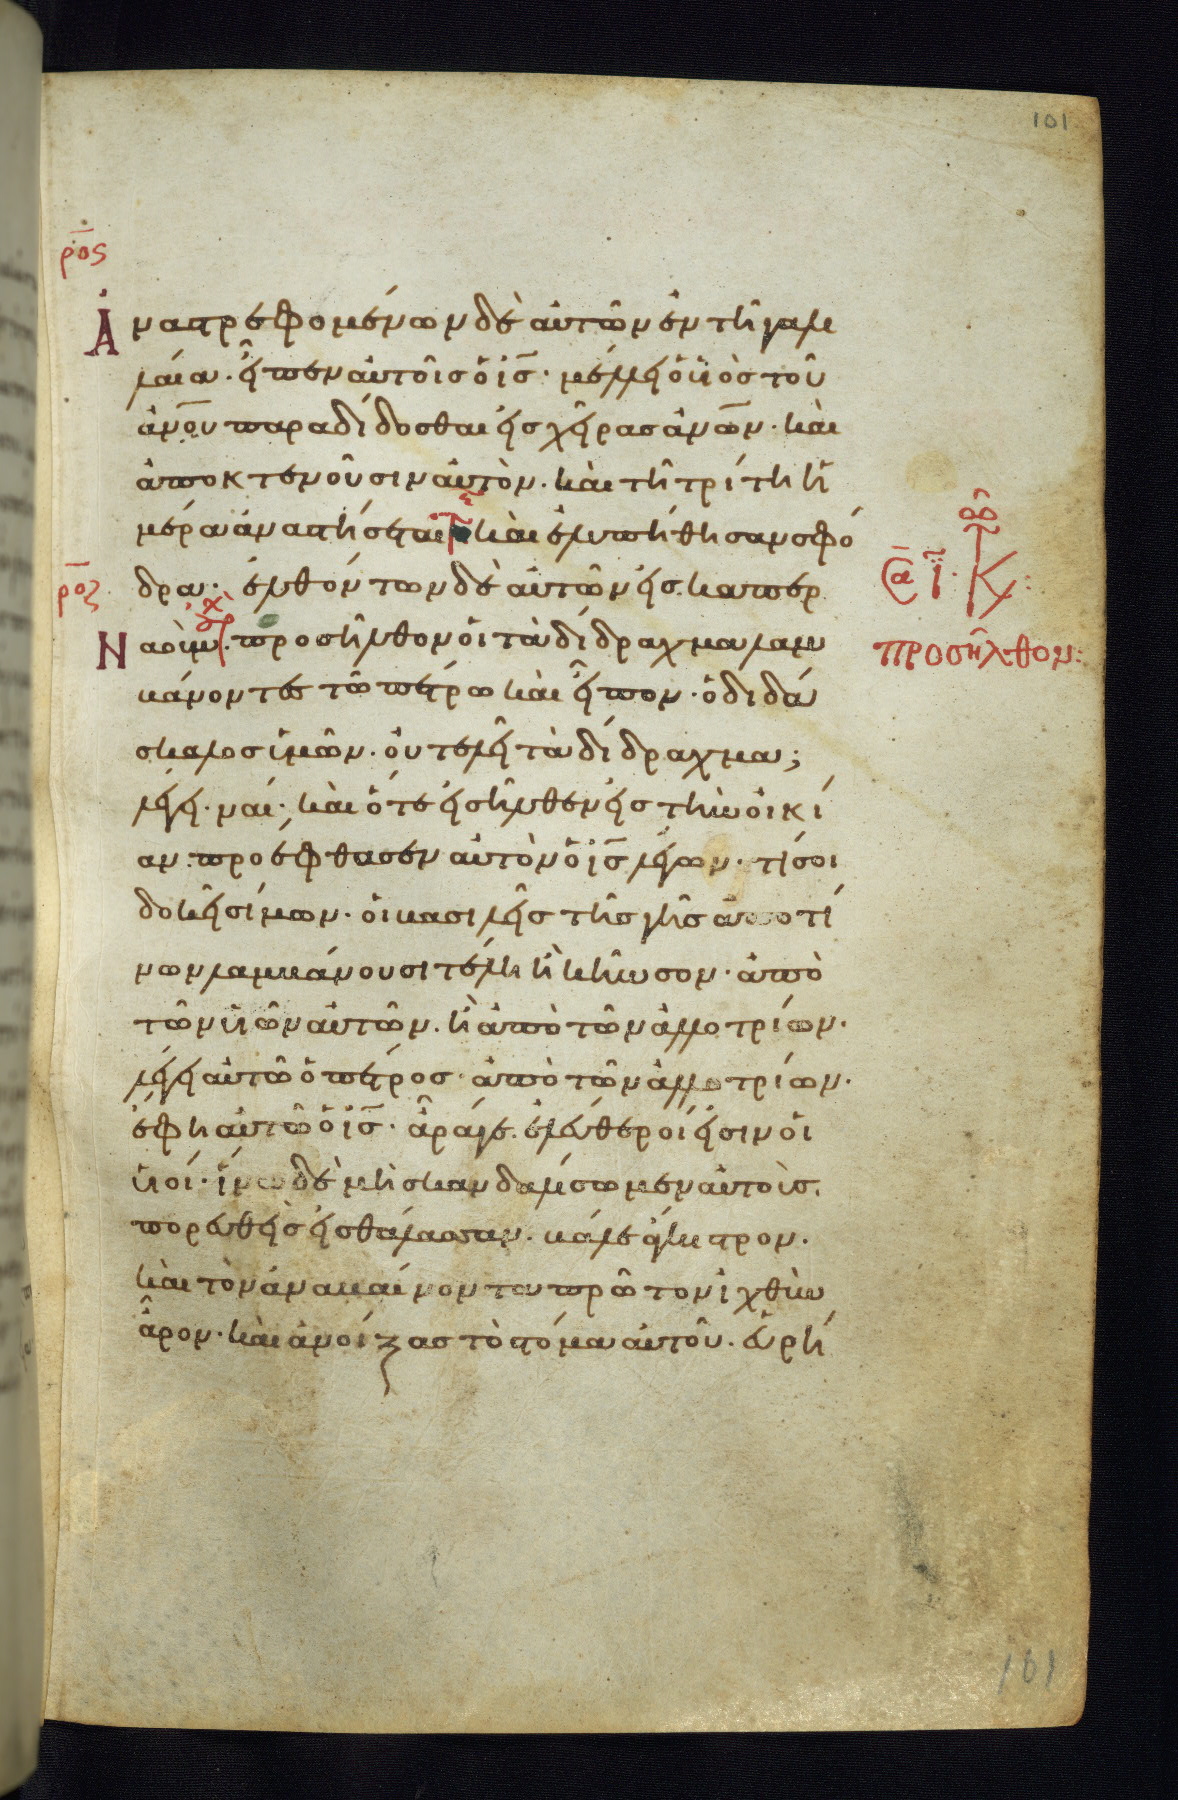 101
ρο̅ς
Ἀναστρεφομένων δὲ αὐτῶν ἐν τῆ γαλι
λαία· εἶπεν αὐτοῖς ὁ ἰ̅ς̅· μέλλει ὁ υἱὸς τοῦ
ἀν̅ο̅υ παραδίδοσθαι εἰς χεῖρας ἀν̅ω̅ν· καὶ
ἀποκτενοῦσιν αὐτὸν· καὶ τῆ τρίτη ἡ
μέρα ἀναστήσεται καὶ ἐλυπήθησαν σφό
ρο̅ζ
δρα· ἐλθόντων δὲ αὐτῶν εἰς καπερ
ναοὺμ· προσῆλθον οἱ τὰ δίδραχμα λαμ
βάνοντες τῶ πέτρω καὶ εἶπον· ὁ διδά
σκαλος ἡμῶν· οὐ τελεῖ τὰ δίδραχμα;
λέγει· ναί· καὶ ὅτε εἰσῆλθεν εἰς τὴν οἰκί
αν προέφθασεν αὐτὸν ὁ ἰ̅ς̅ λέγων· τί σοι
δοκεῖ σίμων· οἱ βασιλεῖς τῆς γῆς ἀπο τί
νων λαμβάνουσι τέλη ἢ κῆνσον· ἀπὸ
τῶν υἱῶν αὐτῶν· ἢ ἀπὸ τῶν ἀλλοτρίων·
λέγει αὐτῶ ὁ πέτρος· ἀπὸ τῶν ἀλλοτρίων·
ἔφη αὐτῶ ὁ ἰ̅ς̅· ἆρά γε ἐλεύθεροί εἰσιν οἱ
υἱοί· ἵνα δὲ μὴ σκανδαλίσωμεν αὐτοὶς·
πορευθεὶς εἰς θάλασσαν· βάλε ἄγκιστρον·
καὶ τὸν ἀναβαίνοντα πρῶτον ἰχθὺν
ἆρον· καὶ ἀνοίξας τὸ στόμα αὐτοῦ· εὑρή
προσῆλθον:
101